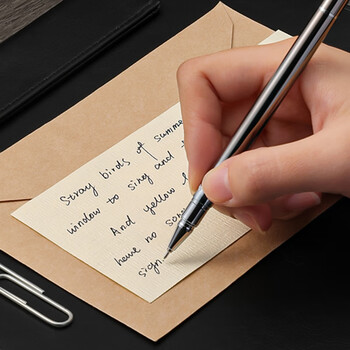 Stray birds of summe
window to sing and
And yellow
have no so
sign.